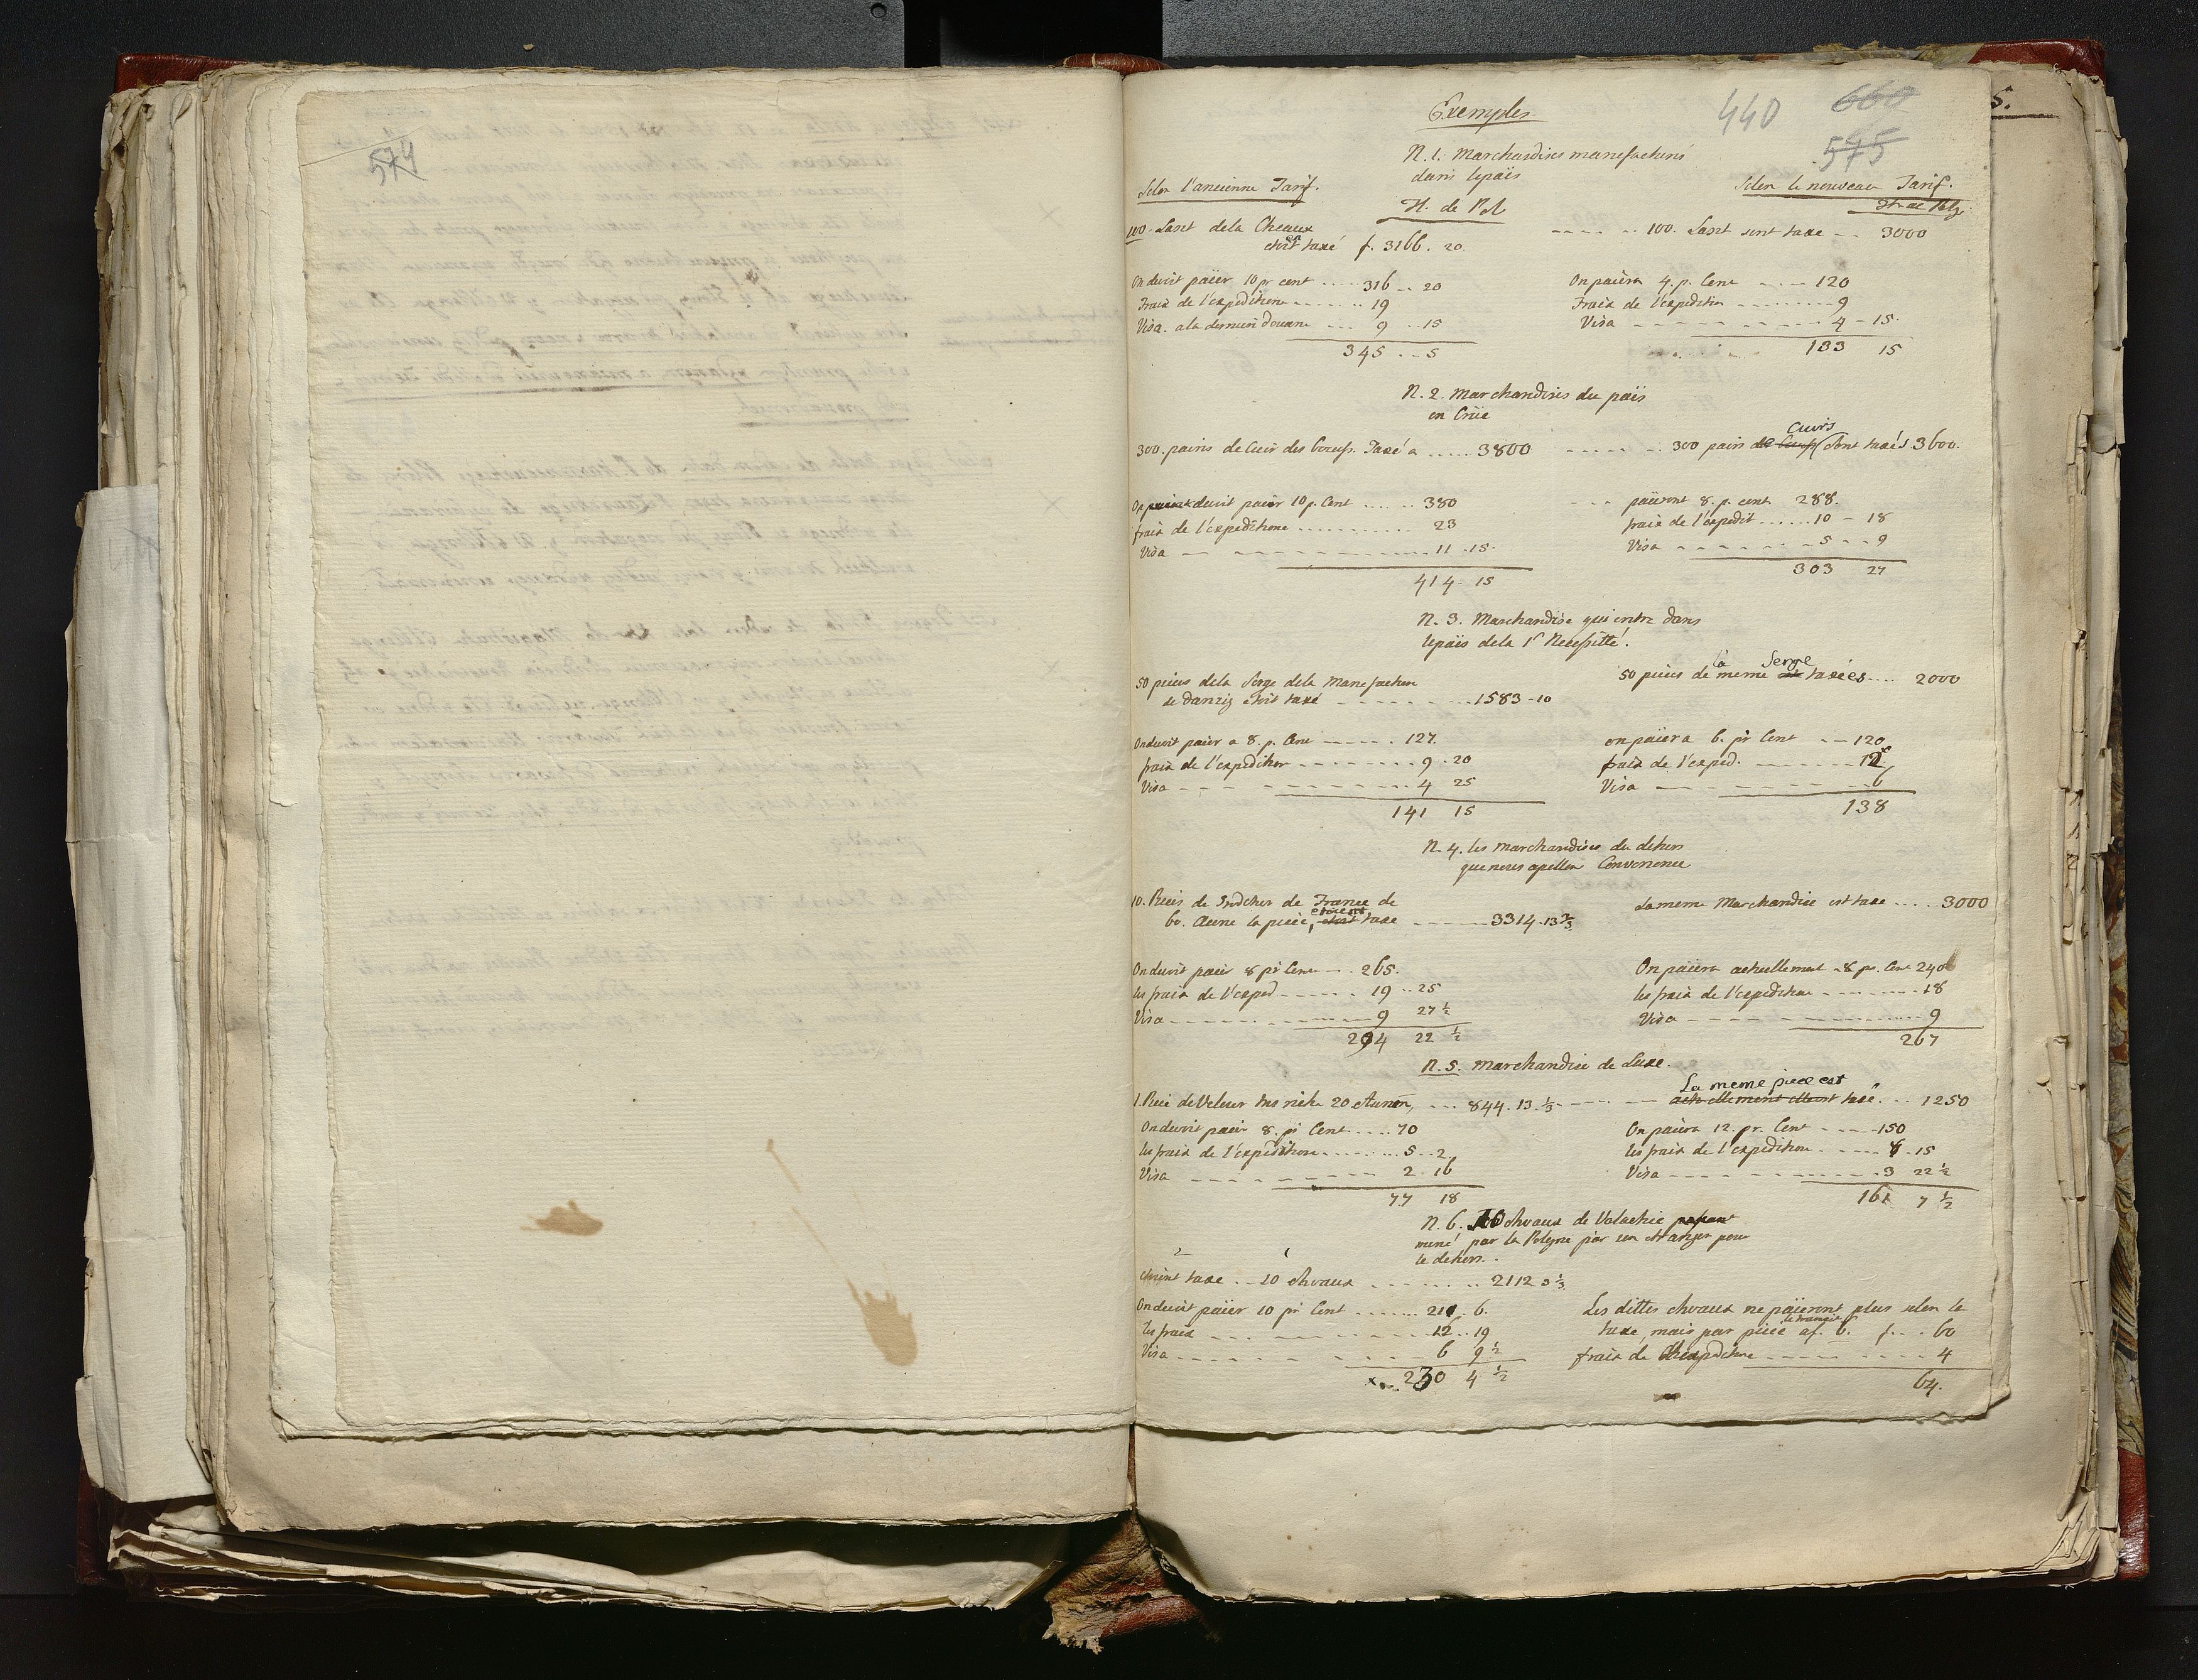 574
440
660
575
5.
Exemples
N. 1. Marchandises manufacturés
dans lepaïs
Selon l'ancienne Tarif.
Selon le nouveau Tarif.
fl. de Pol
fl. de Pol
100. Laszt dela Cheaux
étoit taxé f. 3166. 20
100. Laszt sont taxe 3000
On devit païer 10 pr cent 316 20
Frais de l'expeditione 19
Visa. a la dernieri Douane 9 15
345 5
On païera 4. p. Cent 120
Frais de l'expedition 9
Visa 4 - 15.
133 15
N. 2. Marchandises du païs
en Crüe
300. pairis de Cuir des boeufs. Taxé a 3800
300 pairs Cuirs sont taxés 3600.
On devit païer 10 p. Cent 380
frais de l'expeditione 23
Visa 11. 15.
414. 15
païeront 8. p. cent. 288.
frais de l'expedit 10 - 18
Visa 5 - 9
303 27
N. 3. Marchandise qui entre dans
lepaïs dela 1r Necessitté.
50 pieces dela Serge dela Manefacture
de Danzig etoit taxé 1583 - 10
50 pieces de la meme Serge taxées 2000
On devit païer a 8. p. Cent 127.
frais de l'expedition 9 - 20
Visa 4 25
141 15
on païera 6. pr Cent 120
frais de l'exped. 12
Visa 6
138
N. 4. les Marchandises du dehors
que nous apellon Convenence
10. Pieces de Indchen de France de
60. Aune la piece, etoient taxe 3314. 13 2/3
La meme Marchandise est taxe 3000
On devit païer 8 pr Cent 265.
les frais de l'exped 19 25
Visa 9 27 1/2
294 22 1/2
On païera actuellement 8 pr. Cent 240
les frais de l'expedition 18
Visa 9
267
N. 5. Marchandise de Luxe.
1. Piece de Velour tres riche 20 Aunen, 844. 13 1/3
La meme piece est
actuellement taxé. 1250
On devit païer 8. pr Cent 70
les frais de l'expeditione 5 2
Visa 2 16
77 18
On païera 12. pr. Cent 150
les frais de l'expedition 8 15
Visa 3 22 1/2
161 7 1/2
N. 6. 10 chvaux de Valachie
mené par la Pologne par un etranger pour
le dehors.
etoient taxe 10 chvaux 2112 3 1/3
On devit païer 10 pr Cent 211. 6.
les frais 12 19
Visa 6 9 1/2
230 4 1/2
Les dittes chvaux ne païeront plus selon le
taxe, mais par piece af. 6. f. 60
frais de l'expedition 4
64.